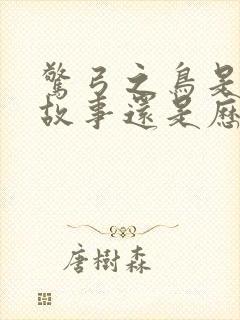 驚弓之鳥是
故事還是歷
唐樹森